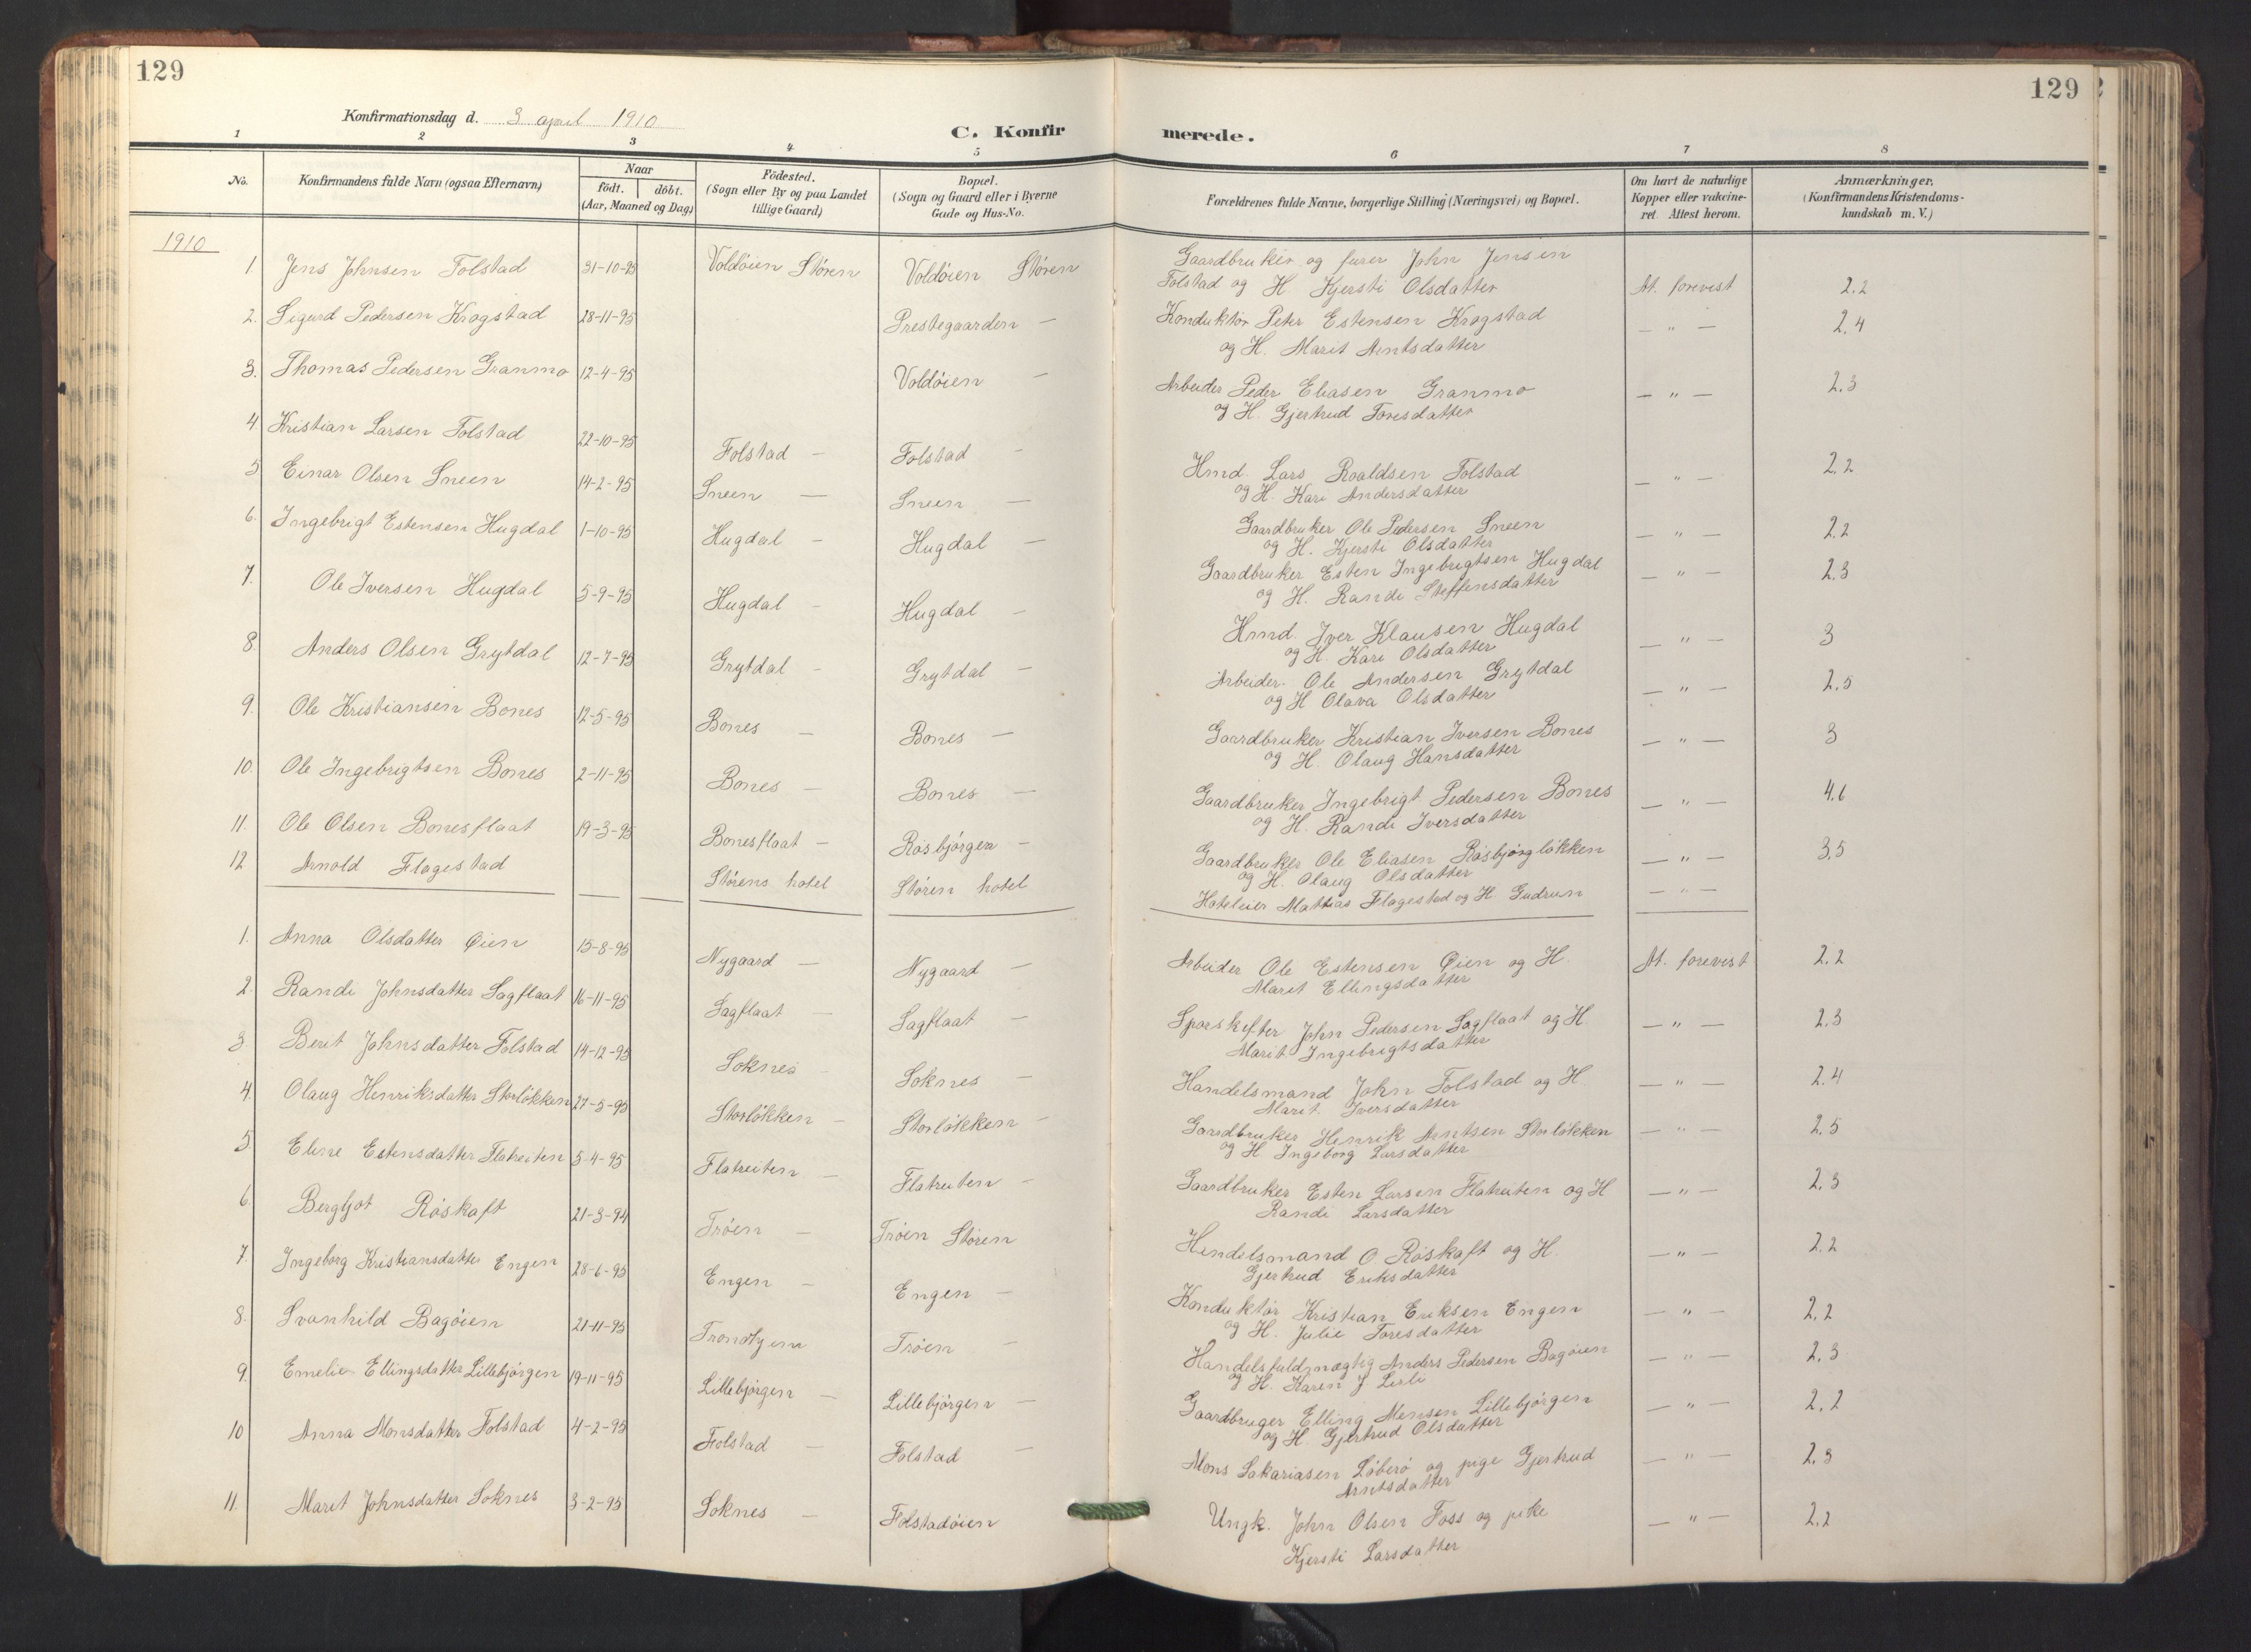 129
129
Konfirmationsdag d. 3 april 1910
C. Konfirmerede.
1 2 3 4 5 6 7 8
No.
Konfirmandens fulde Navn (ogsaa Efternavn)
Naar
födt. döbt.
(Aar, Maaned og Dag)
Födested.
(Sogn eller By og paa Landet
tillige Gaard)
Bopæl.
(Sogn og Gaard eller i Byerne
Gade og Hus-No.
Forældrenes fulde Navne, borgerlige Stilling (Næringsvei) og Bopæl.
Om havt de naturlige
Kopper eller vakcine-
ret. Attest herom.
Anmærkninger.
(Konfirmandens Kristendoms-
kundskab m. V.)
1910
1. Jens Johnsen Folstad 31-10-95 Voldöien Stören Voldöien Stören Gaardbruker og furer John Jensen
Folstad og H. Kjersti Olsdatter At. forevist 2.2
2. Sigurd Pedersen Krogstad 28-11-95 Prestegaarden — Konduktör Peter Estensen Krogstad — " — 2.4
og H. Marit Arntsdatter
3. Thomas Pedersen Granmo 12-4-95 Voldöien — Arbeider Peder Eliasen Granmo — " — 2.3
og H. Gjertrud Toresdatter
4 Kristian Larsen Folstad 22-10-95 Folstad — Folstad - Hmd. Lars Roaldsen Folstad — " — 2.2
og H. Kari Andersdatter
5 Einar Olsen Sneen 14-2-95 Sneen — Sneen — Gaardbruker Ole Pedersen Sneen — " — 2.2
og H. Kjersti Olsdatter
6. Ingebrigt Estensen Hugdal 1-10-95 Hugdal — Hugdal — Gaardbruker Esten Ingebrigtsen Hugdal — " — 2.3
og H. Randi Steffensdatter
7. Ole Iversen Hugdal 5-9-95 Hugdal - Hugdal — Hmd. Iver Klausen Hugdal — " — 3
og H. Kari Olsdatter
8. Anders Olsen Grytdal 12-7-95 Grytdal - Grytdal — Arbeider. Ole Andersen Grytdal — " — 2.5
og H Olava Olsdatter
9. Ole Kristiansen Bones 12-5-95 Bones — Bones — Gaardbruker Kristian Iversen Bones — " — 3
og H. Olaug Hansdatter
10. Ole Ingebrigtsen Bones 2-11-95 Bones — Bones — Gaardbruker Ingebrigt Pedersen Bones — " — 4.6
og H. Randi Iversdatter
11. Ole Olsen Bonesflaat 19-3-95 Bonesflaat — Rosbjörgen — Gaardbruker Ole Eliasen Rosbjörgløkken — " — 3,5
og H. Olaug Olsdatter
12 Arnold Flagestad Störens hotel Stören hotel Hoteleier Mathias Flagestad og H. Gudrun — " —
1. Anna Olsdatter Øien 15-8-95 Nygaard — Nygaard — Arbeider Ole Estensen Øien og H. At. forevist 2.2
Marit Ellingsdatter
2. Randi Johnsdatter Sagflaat 16-11-95 Sagflaat — Sagflaat — Sporskifter John Pedersen Sagflaat og H. — " — 2.3
Marit Ingebrigtsdatter
3. Berit Johnsdatter Folstad 14-12-95 Soknes - Soknes — Handelsmand John Folstad og H. — " — 2.4
Marit Iversdatter
4. Olaug Henriksdatter Storløkken 27-5-95 Storløkken — Storløkken — Gaardbruker Henrik Arntsen Storløkken — " — 2,5
og H Ingeborg Larsdatter
5 Elene Estensdatter Flatreiten 5-4-95 Flatreiten — Flatreiten — Gaardbruker Esten Larsen Flatreiten og H — " — 2,3
Randi Larsdatter
6. Bergljot Röskaft 21-3-94 Tröen — Tröen Stören Handelsmand O Röskaft og H. — " — 2.2
Gjertrud Eriksdatter
7. Ingeborg Kristiansdatter Engen 28-6-95 Engen — Engen — Konduktör Kristian Eriksen Engen — " — 2,2
og H. Julie Toresdatter
8. Svanhild Bagöien 21-11-95 Trondhjem Tröen — Handelsfuldmægtig Anders Pedersen Bagöien — " — 2.3
og H. Karen J
9. Emelie Ellingsdatter Lillebjörgen 19-11-95 Lillebjörgen — Lillebjörgen — Gaardbruger Elling Monsen Lillebjörgen — " — 2.2
og H. Gjertrud Olsdatter
10 Anna Monsdatter Folstad 4-2-95 Folstad — Folstad — Mons Sakariasen og pige Gjertrud — " — 2.3
Arntsdatter
11. Marit Johnsdatter Soknes 3-2-95 Soknes — Folstadöien Ungk. John Olsen Foss og pike — " — 2.2
Kjersti Larsdatter